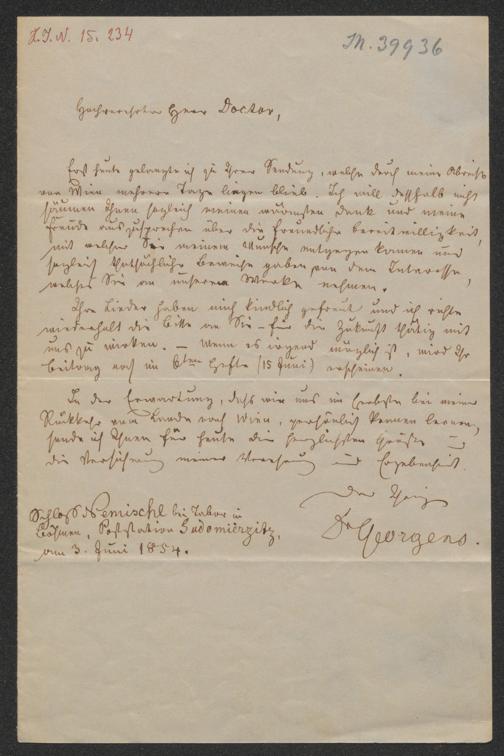 I. J. N. 15. 234
M. 39936
Hochverehrter Herr Doctor,
Erst heute gelangte ich zu Ihrer Sendung, welche durch meine Abreise
von Wien mehrere Tage liegen blieb. Ich will deßhalb nicht
säumen Ihnen sogleich meinen wärmsten Dank und meine
Freude auszusprechen über die freundliche Bereitwilligkeit,
mit welcher Sie meinem Wunsche entgegen kamen und
sogleich thatsächliche Beweise gaben von dem Interesse,
welches Sie an unserem Werke nehmen.
Ihre Lieder haben mich kindlich gefreut und ich richte
wiederholt die Bitte an Sie – für die Zukunft thätig mit
uns zu wirken. – Wenn es irgend möglich ist, wird Ihr
Beitrag noch im 6ten Hefte (15 Juni) erscheinen.
In der Erwartung, daß wir uns im Herbste, bei meiner
Rückkehr vom Lande nach Wien, persönlich kennen lernen,
sende ich Ihnen für heute die herzlichsten Grüße und
die Versicherung meiner Verehrung und Ergebenheit.
Der Ihrige
Dr Georgens.
Schloß Nemischl bei Tabor in
Böhmen, Poststation Sudomierzitz,
am 3. Juni 1854.